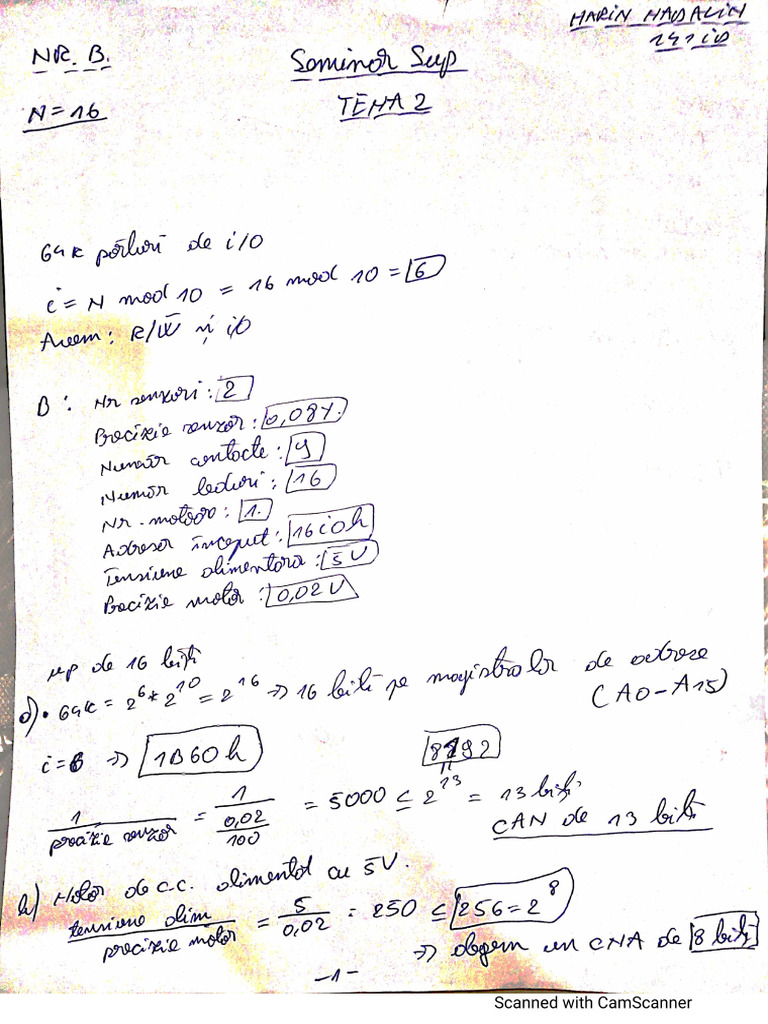 MARIN MADALIN
NR. B. Seminar Sup 
N=16 TEMA 2
64k porturi de i/o
i = N mod 10 = 16 mod 10 = 6
Avem: R/W̅ și i/o
B: Nr senzori: 2
Precizie senzor: 0,08%
Număr contacte: 9
Număr leduri: 16
Nr. motoare: 1.
Adresă început: 16i0h
Tensiune alimentare: 5V
Precizie motor: 0,02V
μp de 16 biți
a) • 64k = 2^6 * 2^10 = 2^16 => 16 biți pe magistrala de adrese
(A0-A15)
i=6 => 1B60h 8192
1/precizie senzor = 1/(0,02/100) = 5000 ≤ 2^13 = 13 biți
CAN de 13 biți
b) Motor de c.c. alimentat cu 5V.
tensiune alim/precizie motor = 5/0,02 = 250 ≤ 256 = 2^8
=> alegem un CNA de 8 biți
-1-
Scanned with CamScanner